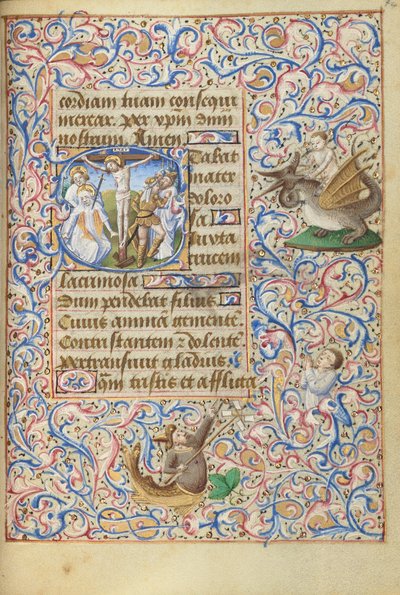 cordiam tuam consequi
merear. Per xpm dnm
nostrum. Amen.
Stabat
mater
doloro
sa
iuxta
crucem
lacrimosa
Dum pendebat filius
Cuius animā gemente
Contristantem ⁊ dolente
Pertransivit gladius.
O Qm tristis et afflicta